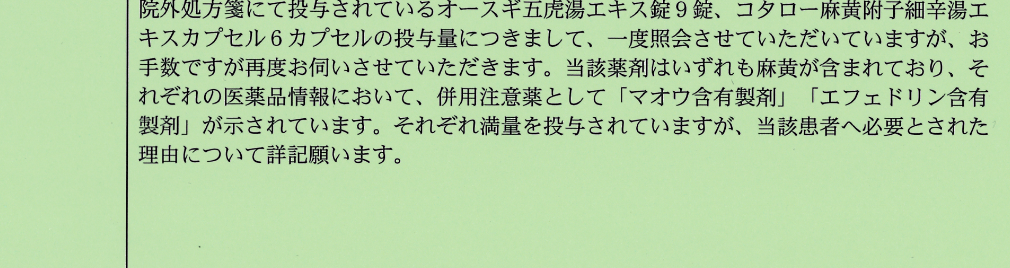 院外処方箋にて投与されているオースギ五虎湯エキス錠９錠、コタロー麻黄附子細辛湯エ
キスカプセル６カプセルの投与量につきまして、一度照会させていただいていますが、お
手数ですが再度お伺いさせていただきます。当該薬剤はいずれも麻黄が含まれており、そ
れぞれの医薬品情報において、併用注意薬として「マオウ含有製剤」「エフェドリン含有
製剤」が示されています。それぞれ満量を投与されていますが、当該患者へ必要とされた
理由について詳記願います。